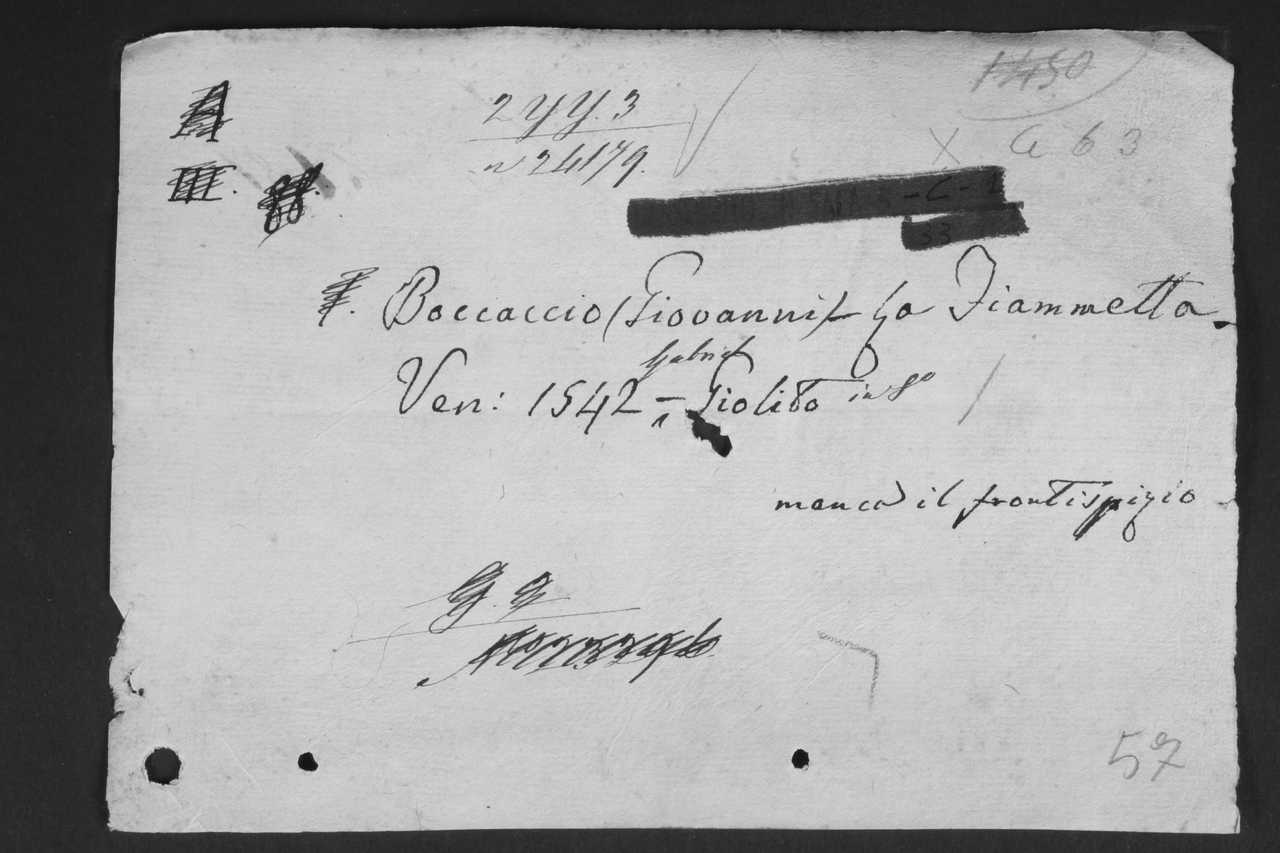 2 y y. 3
n 24179.
X G 63
Boccaccio (Giovanni) La Fiammetta.
Ven: 1542 – Gabriel Giolito in 8º
manca il frontispizio
G. g
57